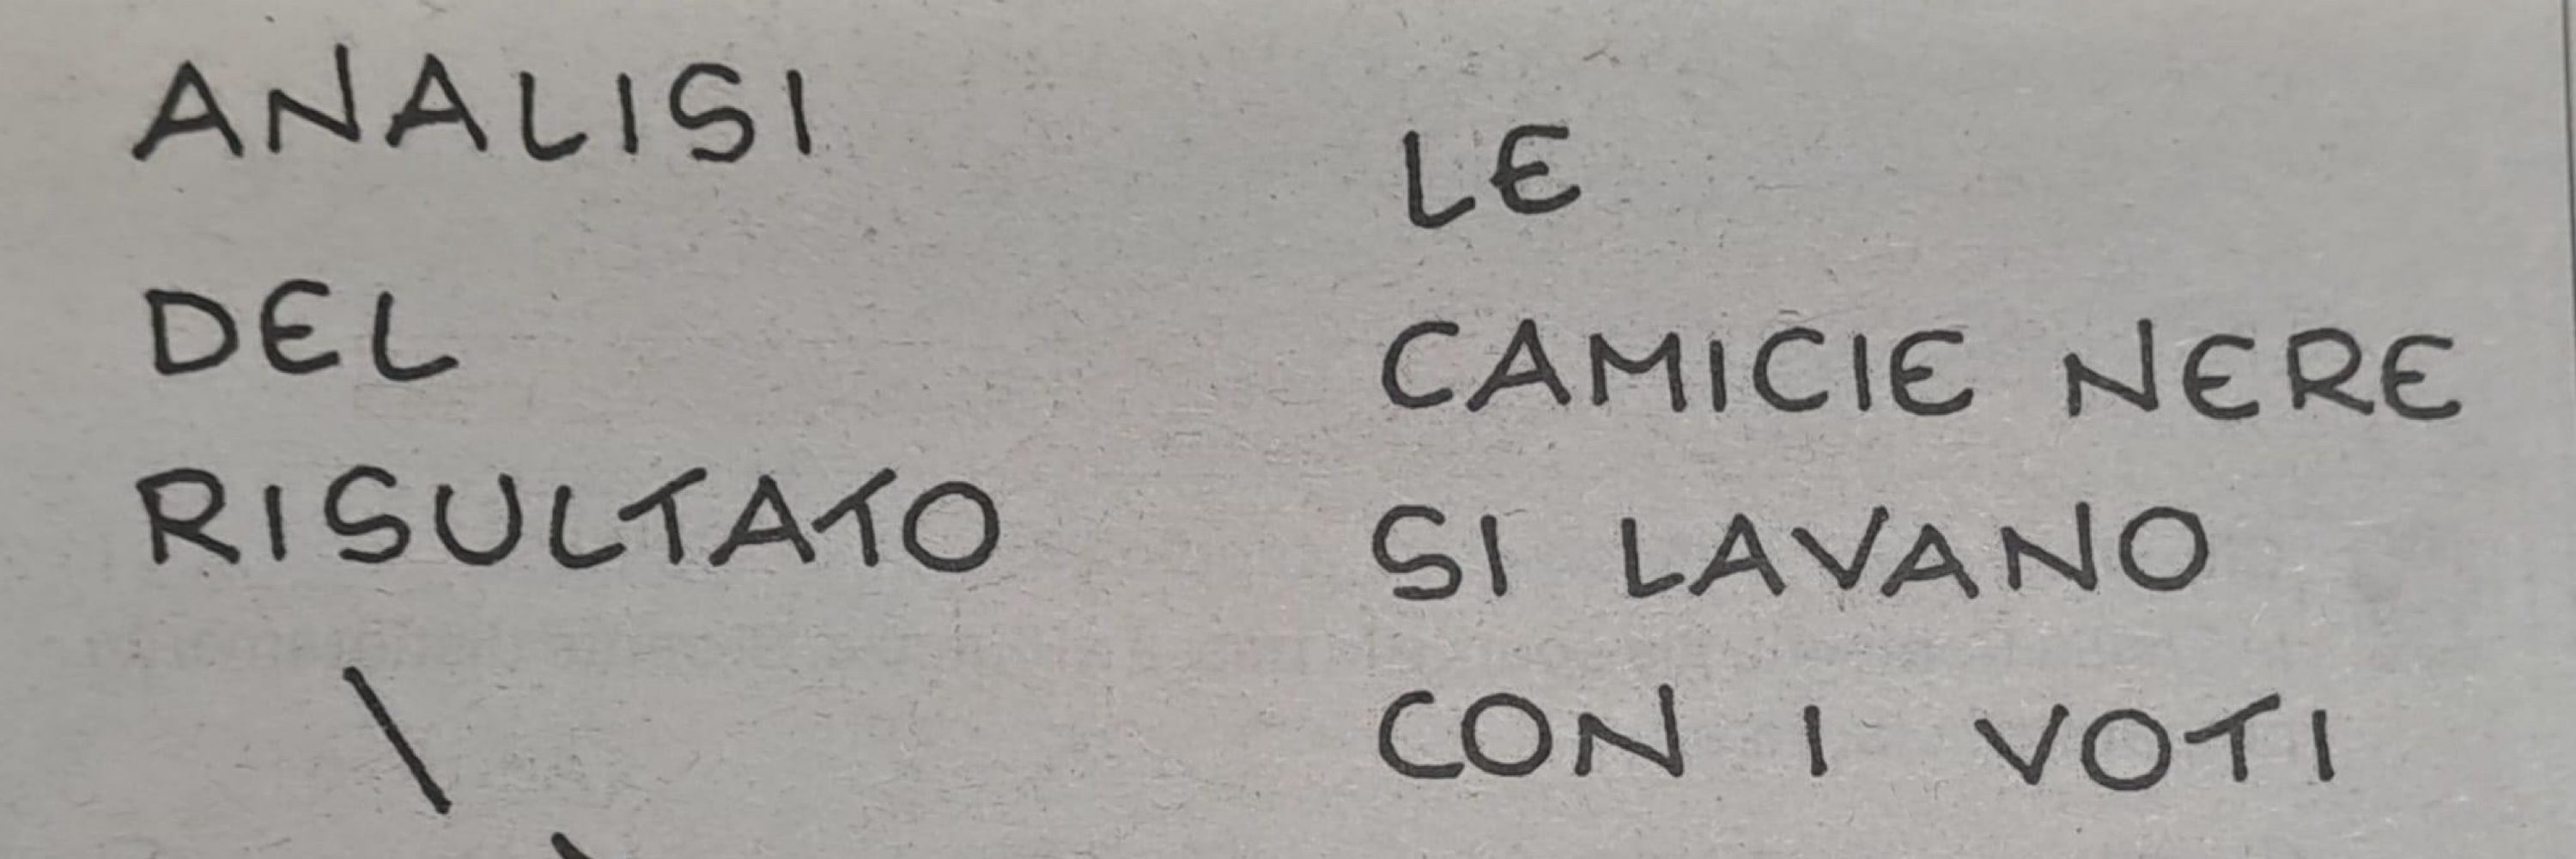 ANALISI
DEL
RISULTATO
LE
CAMICIE NERE
SI LAVANO
CON I VOTI